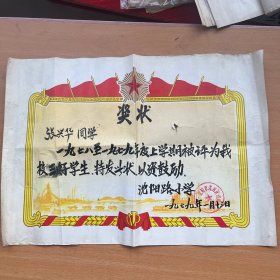 奖状
张兴华同学
一九七八至一九七九年度上学期被评为我
校三好学生，特发奖状，以资鼓励。
沈阳路小学
一九七九年一月廿日